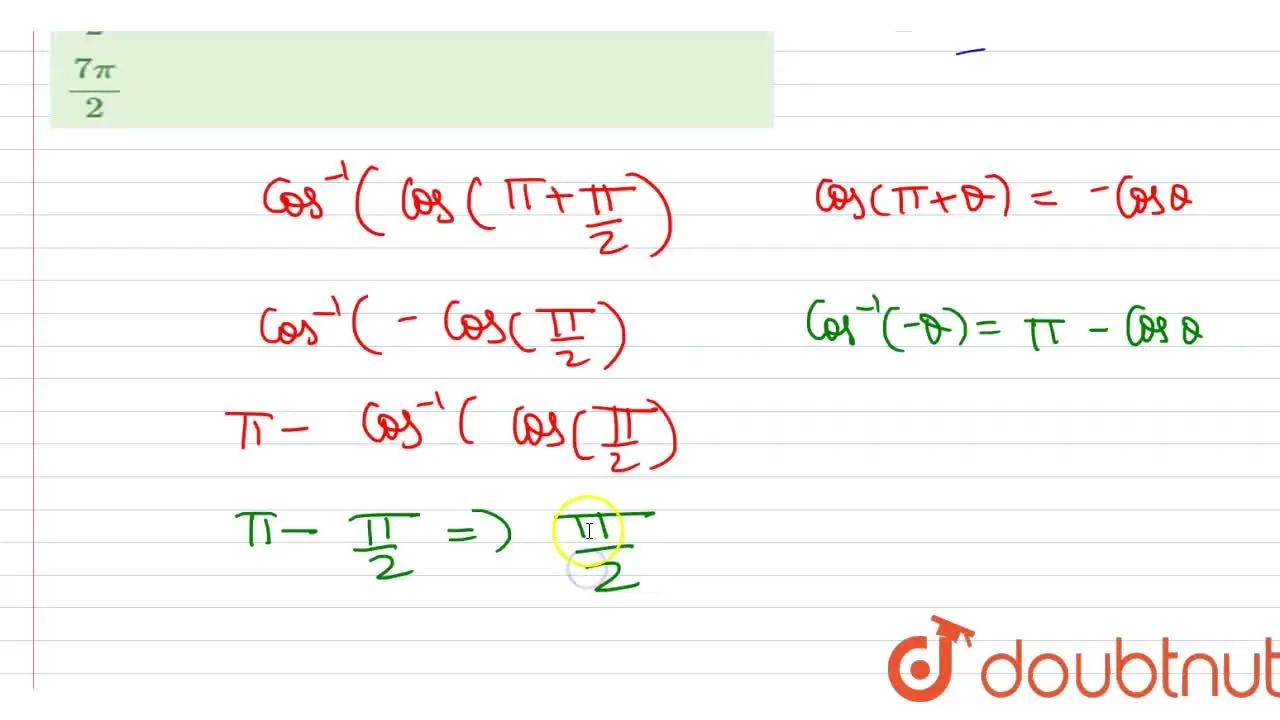 2
7π/2
cos⁻¹(cos(π+π/2)
cos(π+θ) = -cosθ
cos⁻¹(-cos(π/2)
cos⁻¹(-θ) = π - cosθ
π - cos⁻¹(cos(π/2)
π - π/2 => π/2
doubtnut